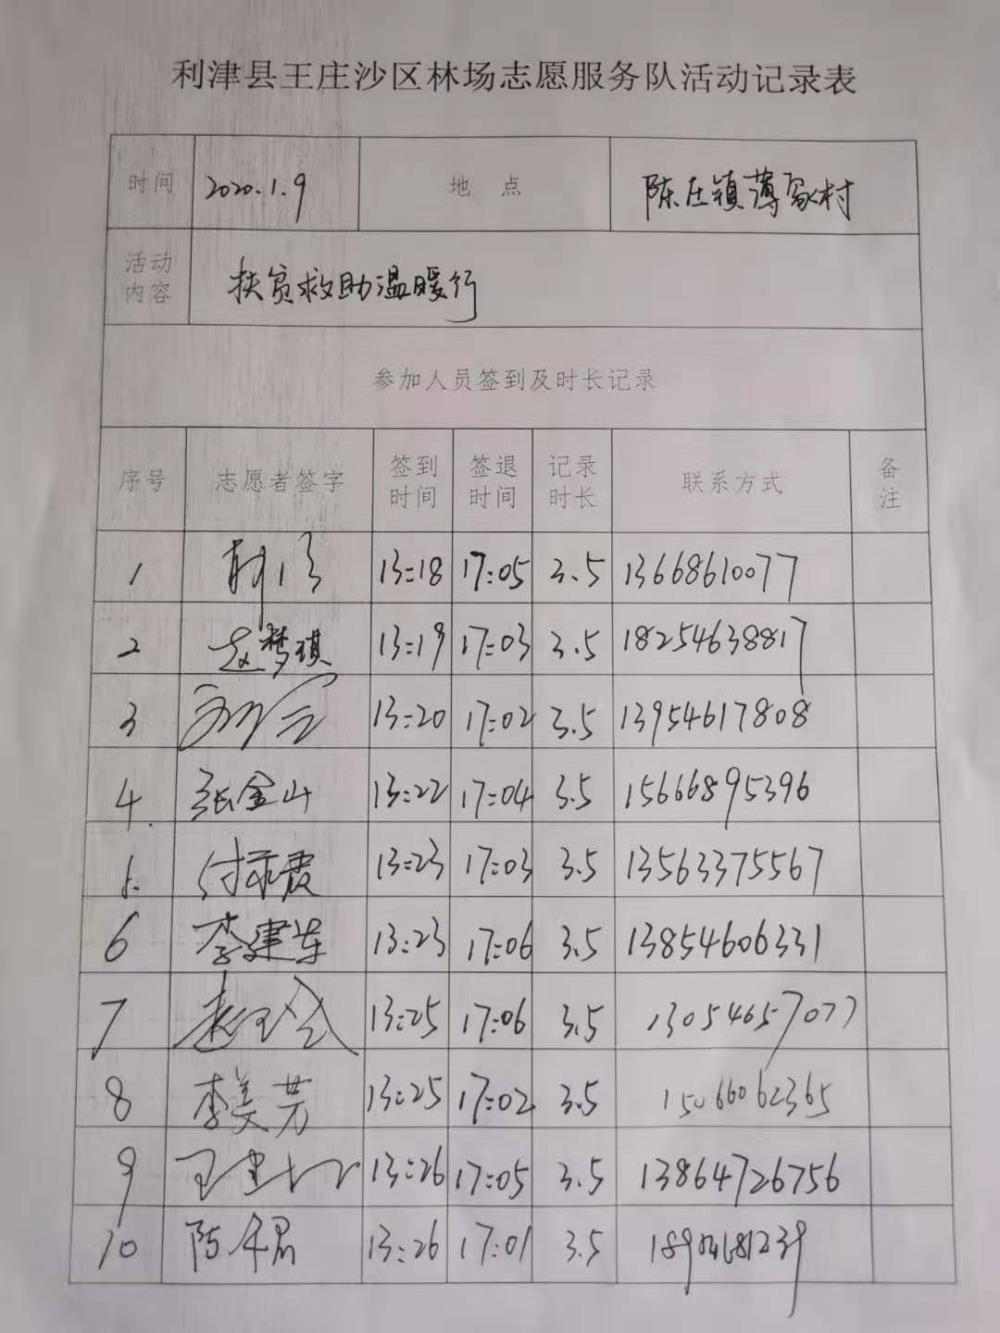 利津县王庄沙区林场志愿服务队活动记录表
时间 2020.1.9 地 点 陈庄镇薄家村
活动内容 扶贫救助温暖行
参加人员签到及时长记录
序号 志愿者签字 签到时间 签退时间 记录时长 联系方式 备注
1 13:18 17:05 3.5 13668610077
2 赵梦琪 13:19 17:03 3.5 18254638817
3 13:20 17:02 3.5 13954617808
4. 张金山 13:22 17:04 3.5 15666895396
5. 13:23 17:03 3.5 13563375567
6 李建华 13:23 17:06 3.5 13854606331
7 13:25 17:06 3.5 13054657077
8 李美芳 13:25 17:02 3.5 15066062365
9 13:26 17:05 3.5 13864726756
10 13:26 17:01 3.5 18904681239